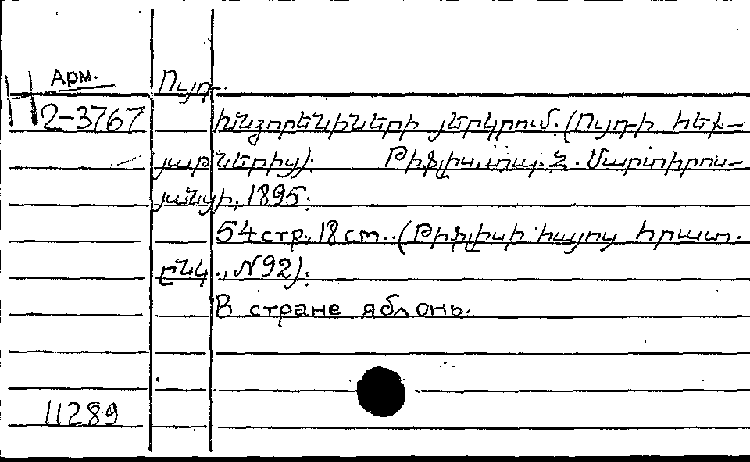 Арм.
Ույդ.
Н 2-3767
Խնձորենիների յերկրում. (Ույդ-ի հեք-
յաթներից):
Թիֆլիս, տպ. Մարտիրոս-
յանցի, 1895:
54 стр., 18 cm. (Թիֆլիսի հայոց հրատ.
ընկ., N 92):
В стране яблонь.
11289